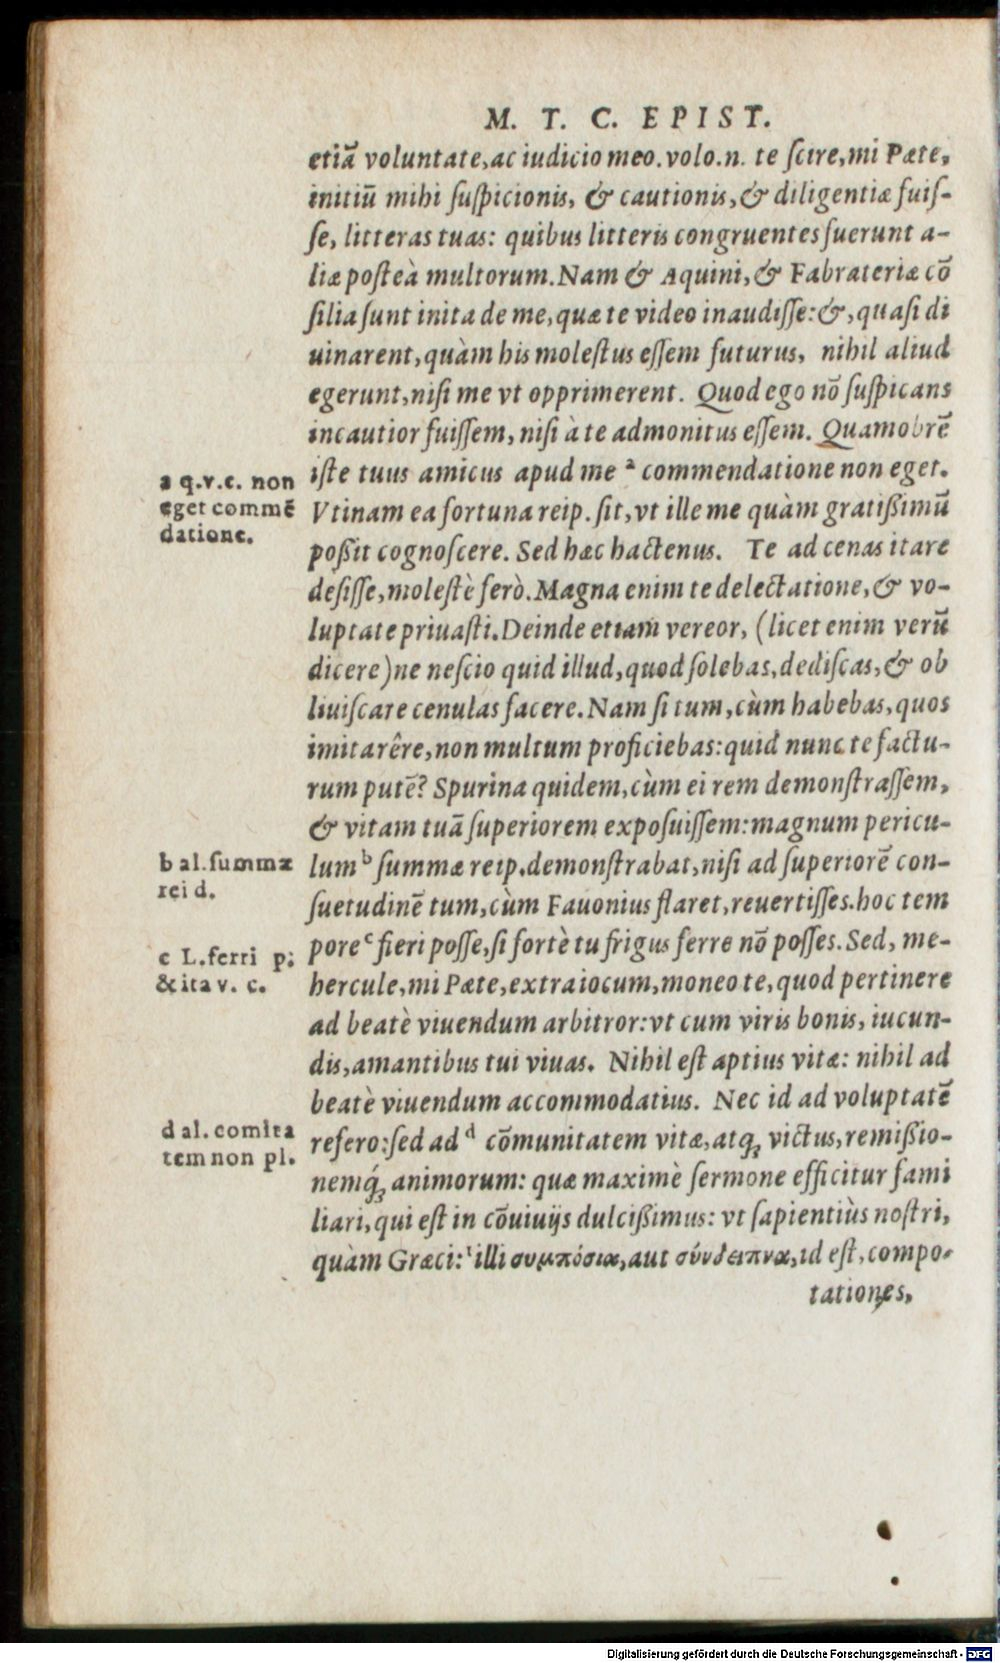 M. T. C. EPIST.
etiā voluntate, ac iudicio meo. volo.n. te scire, mi Pæte,
initiū mihi suspicionis, & cautionis, & diligentiæ fuis-
se, litteras tuas: quibus litteris congruentes fuerunt a-
liæ posteà multorum. Nam & Aquini, & Fabrateriæ cō
silia sunt inita de me, quæ te video inaudisse: &, quasi di
uinarent, quàm his molestus essem futurus, nihil aliud
egerunt, nisi me vt opprimerent. Quod ego nō suspicans
incautior fuissem, nisi à te admonitus essem. Quamobrē
iste tuus amicus apud me ª commendatione non eget.
Vtinam ea fortuna reip. sit, vt ille me quàm gratißimū
poßit cognoscere. Sed hæc hactenus. Te ad cenas itare
desisse, molestè ferò. Magna enim te delectatione, & vo-
luptate priuasti. Deinde etiam vereor, (licet enim verū
dicere) ne nescio quid illud, quod solebas, dediscas, & ob
liuiscare cenulas facere. Nam si tum, cùm habebas, quos
imitarêre, non multum proficiebas: quid nunc te factu-
rum putē? Spurina quidem, cùm ei rem demonstrassem,
& vitam tuā superiorem exposuissem: magnum pericu-
lum ᵇ summæ reip. demonstrabat, nisi ad superiorē con-
suetudinē tum, cùm Fauonius flaret, reuertisses. hoc tem
pore ᶜ fieri posse, si fortè tu frigus ferre nō posses. Sed, me-
hercule, mi Pæte, extra iocum, moneo te, quod pertinere
ad beatè viuendum arbitror: vt cum viris bonis, iucun-
dis, amantibus tui viuas. Nihil est aptius vitæ: nihil ad
beatè viuendum accommodatius. Nec id ad voluptatē
refero: sed ad ᵈ cōmunitatem vitæ, atq; victus, remißio-
nemq́; animorum: quæ maximè sermone efficitur fami
liari, qui est in cōuiuijs dulcißimus: vt sapientiùs nostri,
quàm Græci: illi συμπόσια, aut σύνδειπνα, id est, compo-
tationes,
a q.v.c. non
eget commē
datione.
b al. summæ
rei d.
c L. ferri p;
& ita v. c.
d al. comita
tem non pl.
Digitalisierung gefördert durch die Deutsche Forschungsgemeinschaft - DFG